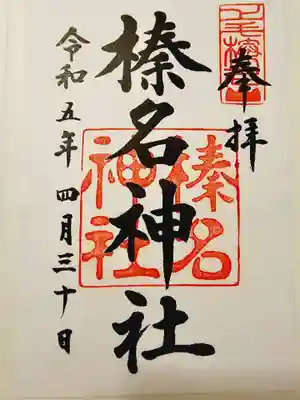 奉拝
榛名神社
榛名
神社
令和五年 四月三十日